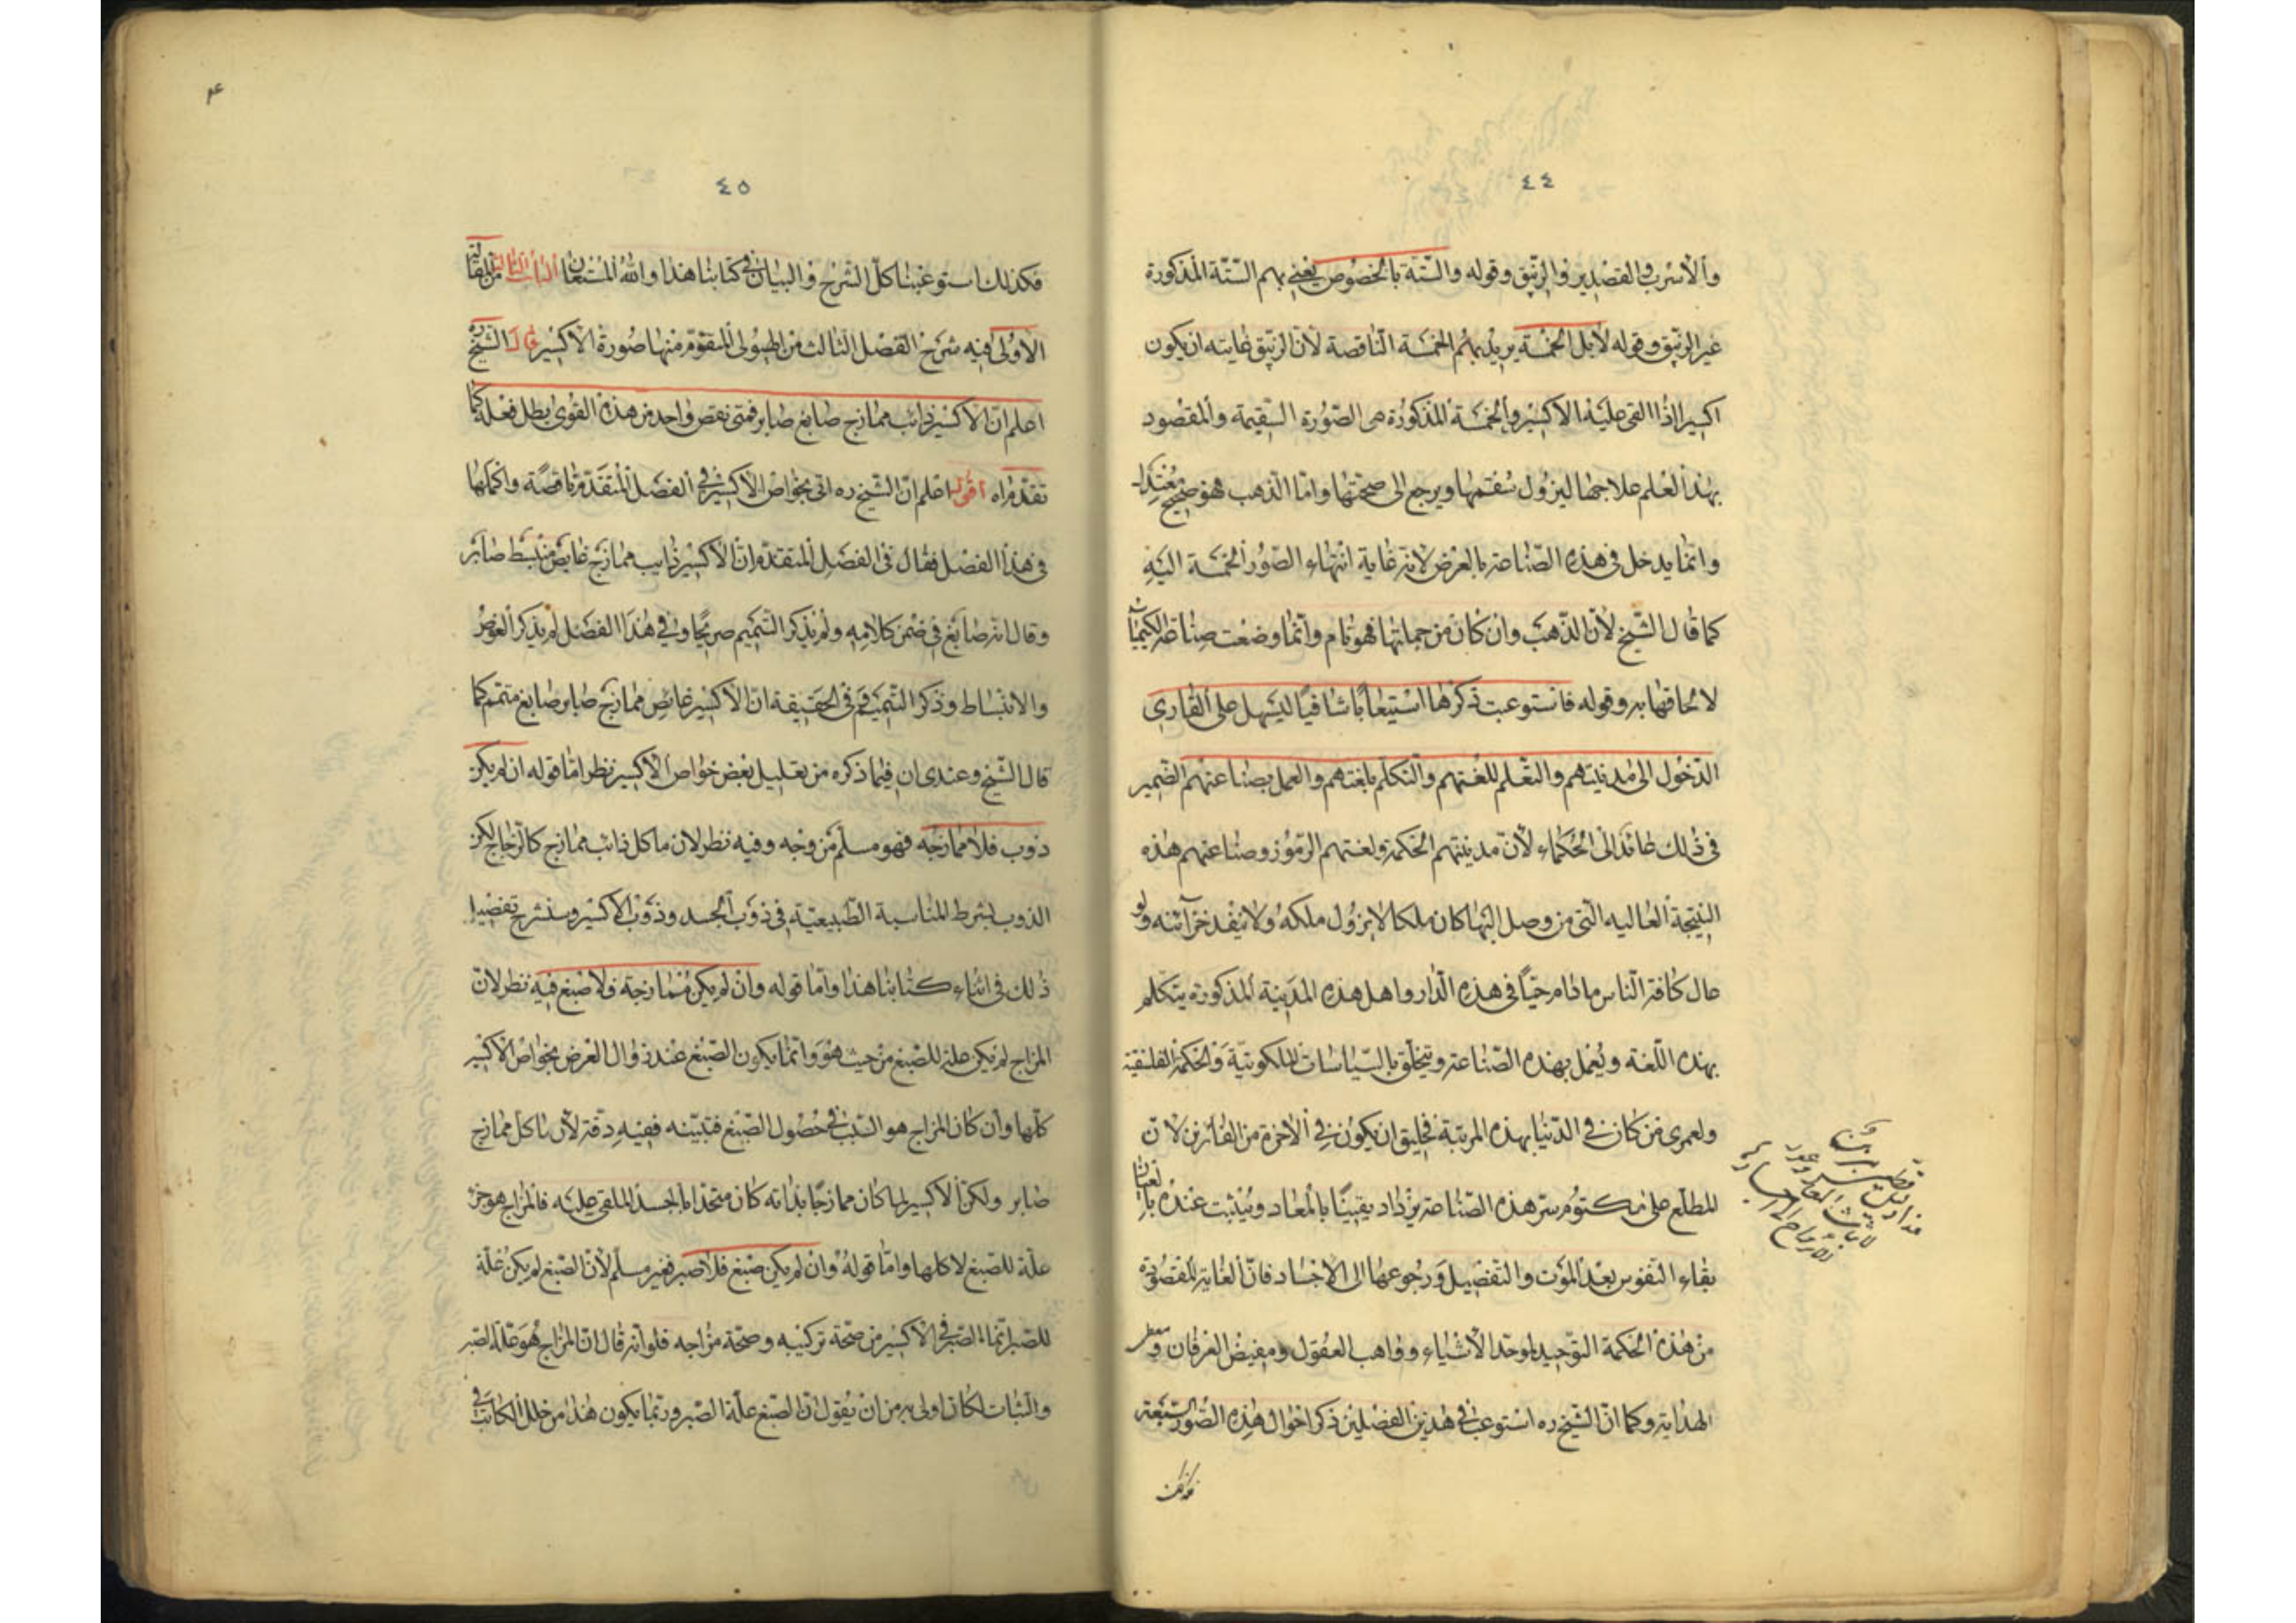 ٤٤
والأسرب والقصدير والزيبق وقوله والستة بالخصوص يعني بهم الستة المذكورة
غير الزيبق وقوله لا بل الخمسة يريد بهم الخمسة الناقصة لأن الزيبق غايته ان يكون
اكسيرا اذا القى عليه الاكسير والخمسة المذكورة هي الصورة السقيمة والمقصود
بهذا العلم علاجها ليزول سقمها ويرجع الى صحتها واما الذهب فهو صحيح معتدل
وانما يدخل في هذه الصناعة بالعرض لانه غاية انتهاء الصور الخمسة اليه
كما قال الشيخ لأن الذهب وان كان من جملتها فهو تام وانما وضعت صناعة الكيمياء
لالحاقها به وقوله فاستوعبت ذكرها استيعابا شافيا ليسهل على القاري
الدخول الى مدينتهم والتعلم للغتهم والتكلم بلغتهم والعمل بصناعتهم الضمير
في ذلك عائد الى الحكماء لأن مدينتهم الحكمة ولغتهم الرموز وصناعتهم هذه
النتيجة العاليه التي من وصل اليها كان ملكا لا يزول ملكه ولا ينفد خزآئنه ولو
عال كافة الناس ما دام حيا في هذه الدار واهل هذه المدينة المذكورة يتكلم
بهذه اللغة ويعمل بهذه الصناعة ويتخلق بالسياسات الملكوتية والحكمة الفلسفية
ولعمري من كان في الدنيا بهذه المرتبة فخليق ان يكون في الآخرة من الفائزين لأن
المطلع على مكتوم سر هذه الصناعة يزداد يقينا بالمعاد ويثبت عنده بالعيان
بقاء النفوس بعد الموت والتفصيل ورجوعها الى الاجساد فان الغاية المقصودة
من هذه الحكمة التوحيد لموحد الأشياء وواهب العقول ومفيض العرفان ومعطي
الهداية وكما ان الشيخ ره استوعب في هذين الفصلين ذكر احوال هذه الصور السبعة
فكذلك
٤٥
فكذلك استوعبنا كل الشرح والبيان في كتابنا هذا والله المستعان الباب الثالث من المقالة
الاولى فيه شرح الفصل الثالث من الهيولى المتقوم منها صورة الاكسير قال الشيخ ره
اعلم ان الاكسير ذائب ممازج صابغ صابر فمتى نقص واحد من هذه القوى بطل فعله كما
تقدم اه اقول اعلم ان الشيخ ره اتى بخواص الاكسير في الفصل المتقدم ناقصة واكملها
في هذا الفصل فقال في الفصل المتقدم ان الاكسير ذايب ممازج غايص منبسط صابر
وقال انه صابغ في ضمن كلامه ولم يذكر التتميم صريحا وفي هذا الفصل لم يذكر الغوص
والانبساط وذكر التتميم في الحقيقة ان الاكسير غائص ممازج صابر صابغ متمم كما
قال الشيخ وعندي ان فيما ذكره من تعليل بعض خواص الاكسير نظر اما قوله ان لم يكن
ذوب فلا ممازجه فهو مسلم من وجه وفيه نظر لان ما كل ذائب ممازج كالزجاج لكن
الذوب بشرط المناسبة الطبيعية في ذوب الجسد وذوب الاكسير وسنشرح تفصيل
ذلك في اثناء كتابنا هذا واما قوله وان لم يكن ممازجة فلا صبغ فيه نظر لان
المزاج لم يكن علة للصبغ من حيث هو وانما يكون الصبغ عند زوال العرض بخواص الاكسير
كلها وان كان المزاج هو السبب في حصول الصبغ فتبينه ففيه دقة لان ما كل ممازج
صابر ولكن الاكسير لما كان ممازجا بذاته كان متحدا بالجسد الملقى عليه فالمزاج هو جزء
علة للصبغ لا كلها واما قوله وان لم يكن صبغ فلا صبر فغير مسلم لأن الصبغ لم يكن علة
للصبر انما الصبر في الاكسير من صحة تركيبه وصحة مزاجه فلو انه قال ان المزاج هو علة الصبر
والثبات لكان اولى به من ان يقول ان الصبغ علة الصبر وربما يكون هذا من خلل الكاتب في